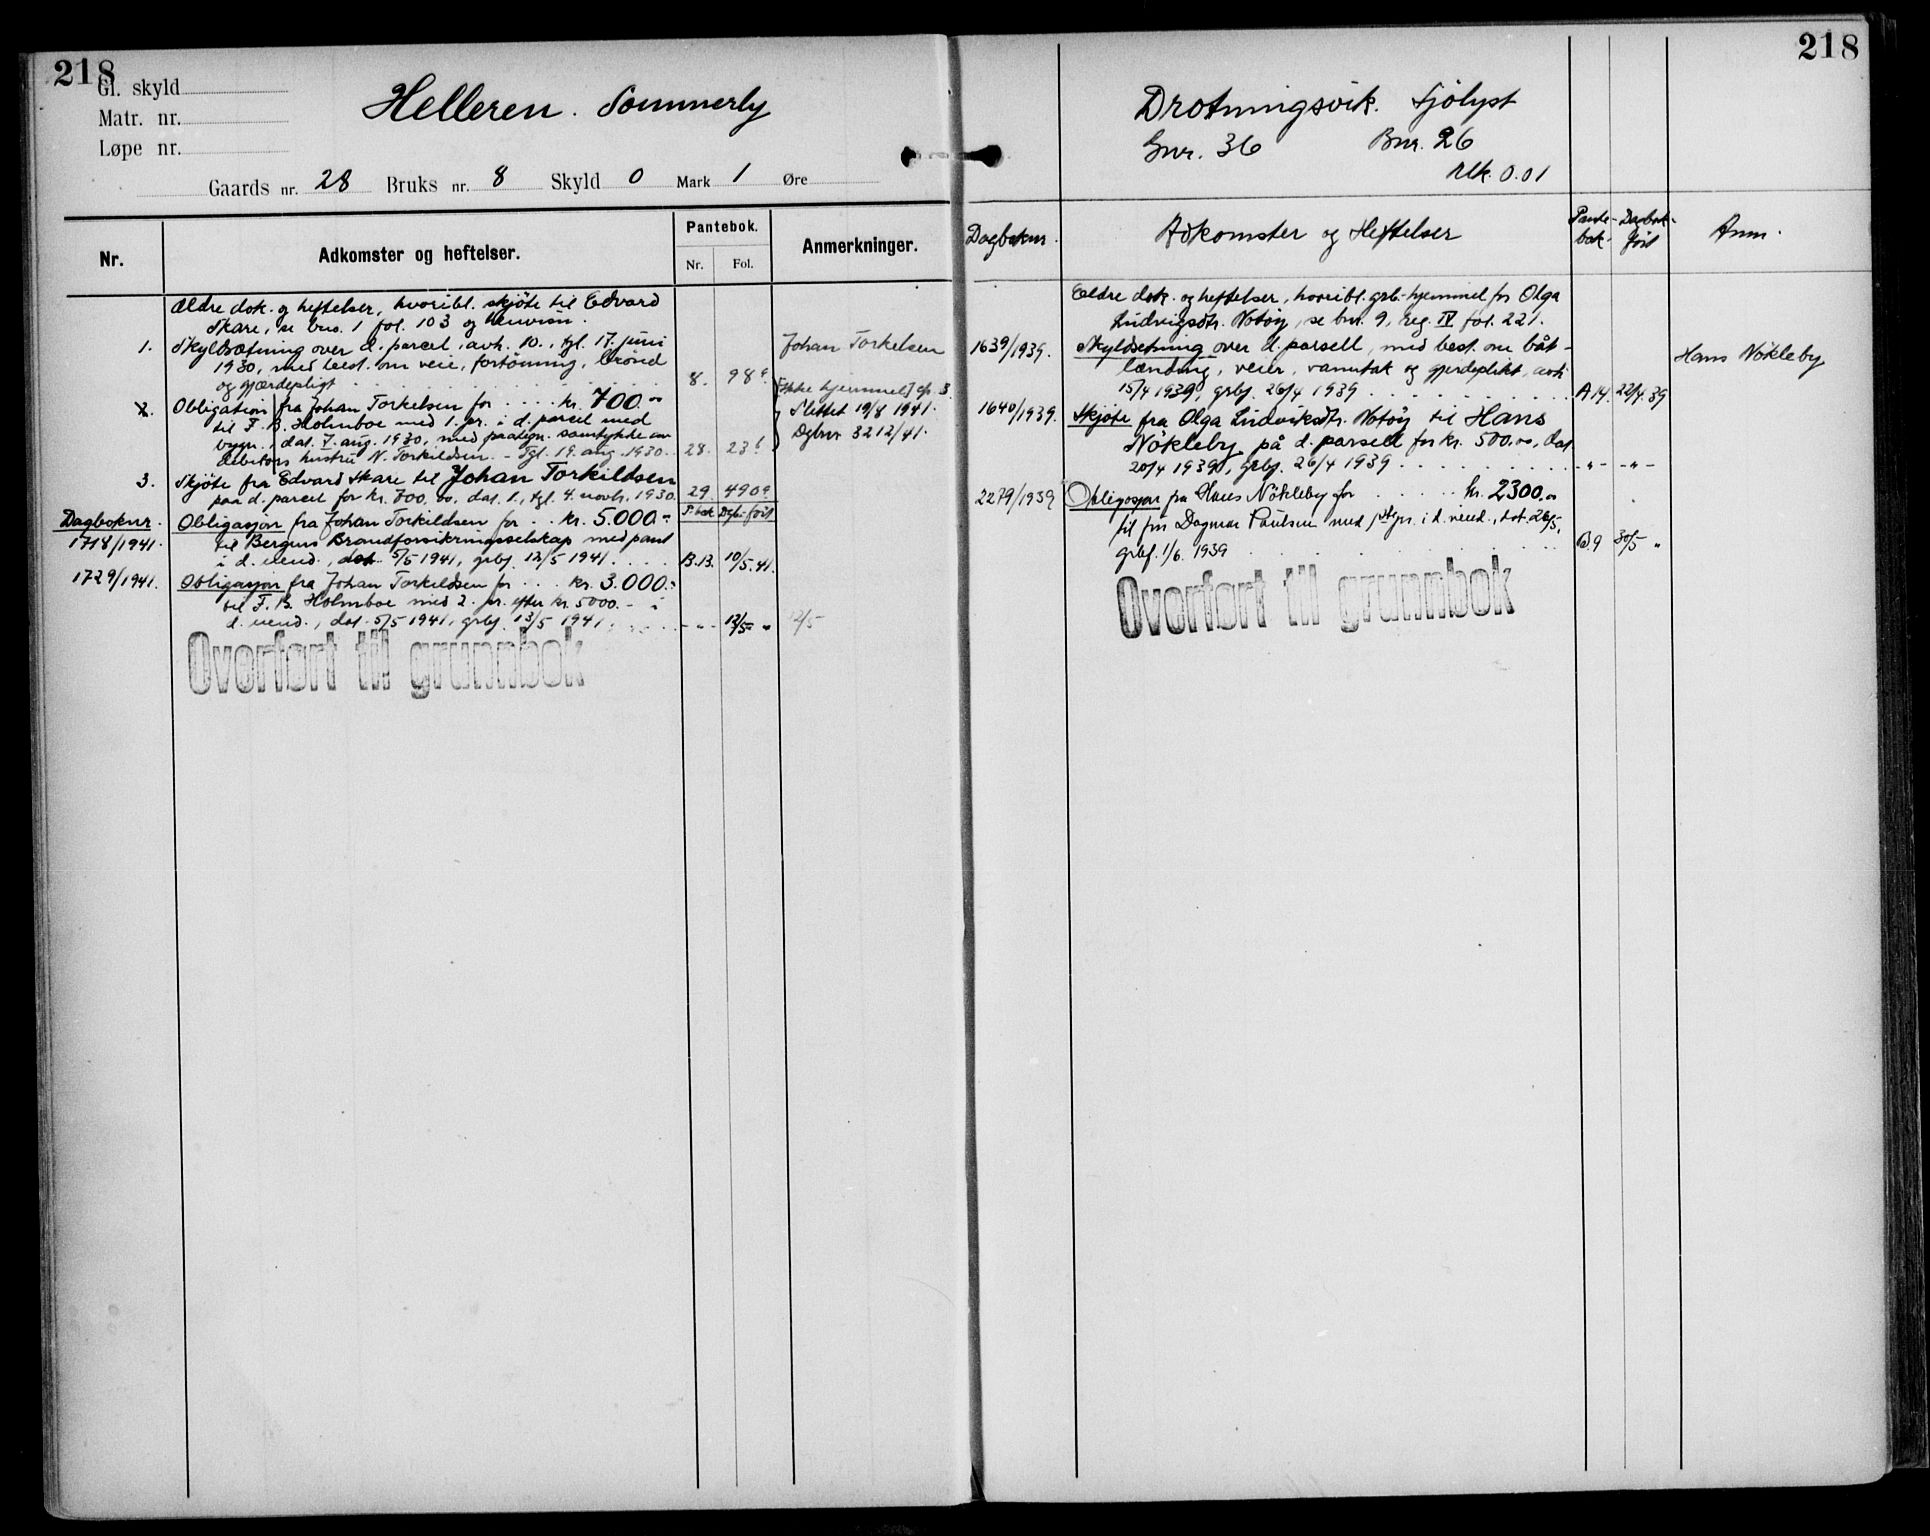 218
Gl. skyld
Matr. nr.
Løpe nr.
Helleren. Sommerly
Gaards nr. 28 Bruks nr. 8 Skyld 0 Mark 1 Øre
Nr.
Adkomster og heftelser.
Pantebok.
Nr. Fol.
Anmerkninger.
Ældre dok. og heftelser, hvoribl. skjöte til Edvard
Skare, se bno. 1 fol. 103 og henvisn.
1. Skyldsætning over d. parcel, avh. 10., tgl. 17. juni
1930, med best. om veie, fortöining, brönd
og gjærdepligt 8. 98
Johan Torkelsen
[ikke hjemmel] cfr. 3
2. Obligation fra Johan Torkelsen for kr. 700.-
til F. B. Holmboe med 1. pr. i d. parcel med
bygn., dat. 7. aug. 1930, med paategn. samtykke av
debitors hustru N. Torkildsen. - Tgl. 19. aug. 1930. 28. 23
Slettet 19/8 1941.
Dgbnr. 3212/41.
3. Skjöte fra Edvard Skare til Johan Torkildsen
paa d. parcel for kr. 700,00, dat. 1., tgl. 4. novbr. 1930. 29 490
Dagboknr. P.bok Dgb.-förd
1718/1941. Obligasjon fra Johan Torkildsen for kr. 5.000.-
til Bergens Brandforsikringsselskap med pant
i d. eiend., dat. 5/5 1941, grbf. 12/5 1941. B.13. 10/5.41.
1729/1941. Obligasjon fra Johan Torkildsen for kr. 3.000.-
til F. B. Holmboe med 2. pr. efter kr. 5000.- i
d. eiend., dat. 5/5 1941, grbf. 13/5 1941. - " - 12/5 "
12/5
Overført til grunnbok
218
Drotningsvik. Sjölyst
Gnr. 36 Bnr. 26
Mk. 0.01
Dagboknr.
Adkomster og Heftelser
Pante-bok. Dagbok-förd
Anm.
Eldre dok. og heftelser, hvoribl. grb.-hjemmel for Olga
Ludvigsdtr. Notöy, se bnr. 9, reg. IV fol. 221.
1639/1939. Skyldsetning over d. parsell, med best. om båt-
lænding, veier, vannutak og gjerdeplikt, avh.
15/4 1939, grbf. 26/4 1939 A 14. 22/4.39
Hans Nökleby
1640/1939. Skjöte fra Olga Ludviksdtr. Notöy til Hans
Nökleby på d. parsell for kr. 500.00, dat.
20/4 1939, grbf. 26/4 1939 - " - - " -
2279/1939 Obligasjon fra Hans Nökleby for kr. 2300.-
til frk. Dagmar Paulsen med 1ste pr. i d. eiend., dat. 26/5,
grbf. 1/6. 1939 B9 30/5 "
Overført til grunnbok